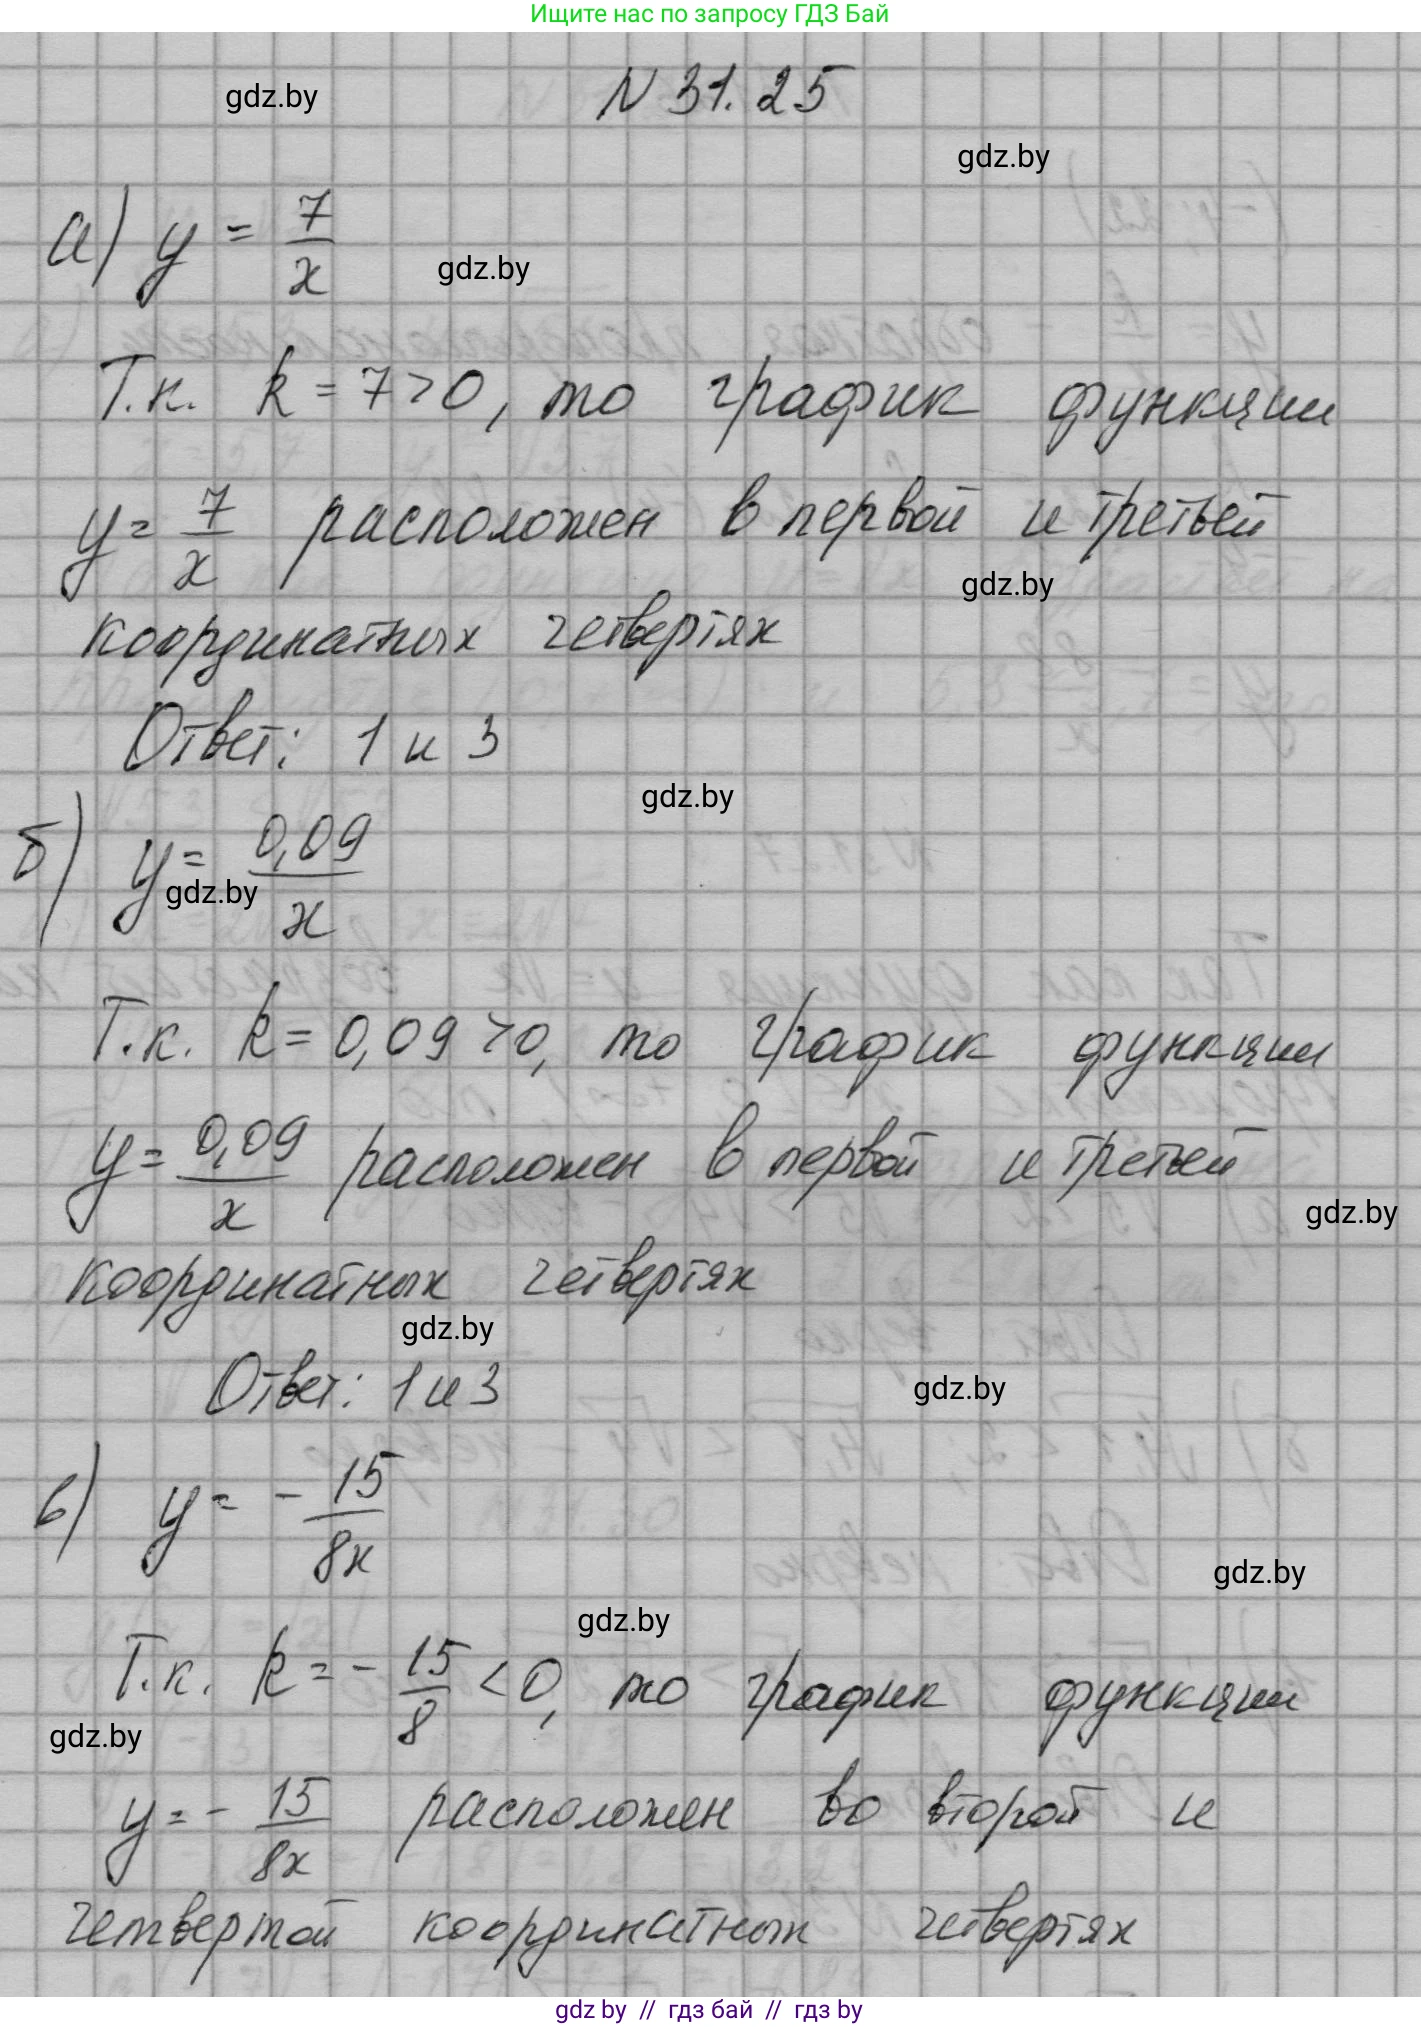 Ищите нас по запросу ГДЗ Бай
gdz.by
N 31.25
gdz.by
а) y = 7/x
gdz.by
Т.к. k = 7 > 0, то график функции
y = 7/x расположен в первой и третьей
gdz.by
координатных четвертях
Ответ: 1 и 3
gdz.by
б) y = 0,09/x
gdz.by
Т.к. k = 0,09 > 0, то график функции
y = 0,09/x расположен в первой и третьей
gdz.by
координатных четвертях
gdz.by
Ответ: 1 и 3
gdz.by
в) y = - 15/8x
gdz.by
gdz.by
Т.к. k = - 15/8 < 0, то график функции
gdz.by
y = - 15/8x расположен во второй и
четвертой координатных четвертях
gdz by // гдз бай // гдз by